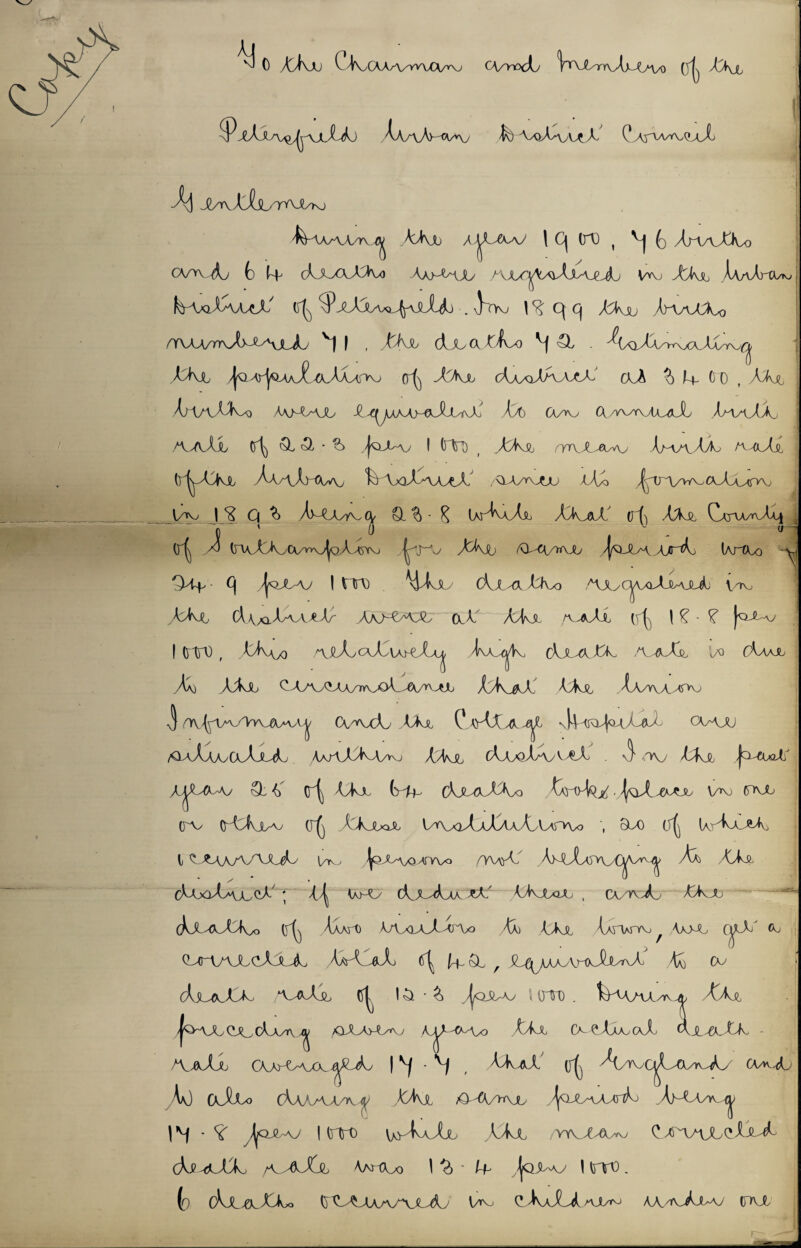 Copy
To the Chairman and Members of the
Petersfield Urban District Council
Gentlemen
During the year 1900, 76 births
and 64 deaths were registered in the Urban
District of Petersfield. In 1899 the births
numbered 71, the deaths 72. Estimating
the population of the district at 3400, the
births were equivalent to an annual birth
rate of 22.3 per 1000, the mean birth rate
of the Urban District since its formation
in 1893 being 23.8 while that of the County
of Southampton for the same period was
24.9 per 1000. The deaths registered in
the district were at the rate of 18.8 per
1000, this relatively high death rate is due
to the circumstance that the Union
Infirmary and the Cottage Hospital are
situated within the district. In the past
year 26 of the 64 deaths took place in one
or other of these institutions, 20 of which
occurred in persons not belonging to the
district; if we deduct these, and the
deaths of two visitors to the town, we get a
corrected total of 42, equivalent to a
death rate of 12.3 per 1000. During the
preceding seven years the actual death-
rate averaged 17.7, that of England and
Wales during the same period being
17.8 per 1000 while the mean corrected
death rate was 13.4 per 1000.
6 deaths occurred in children under one